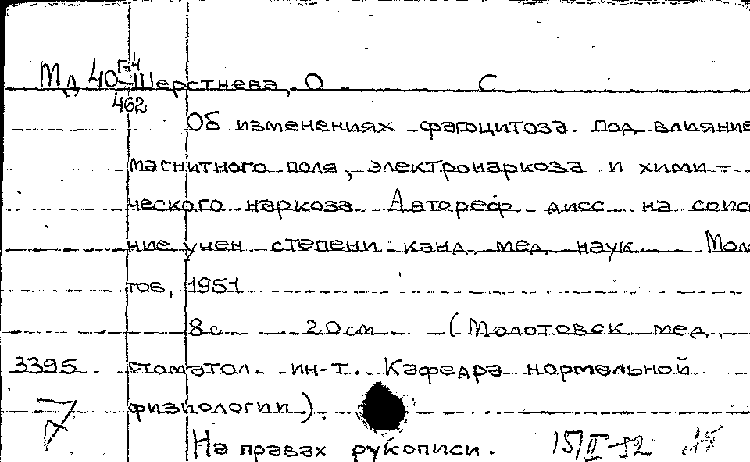 Мд 40 Шерстнева, О С
462
Об изменениях фагоцитоза под влияние
магнитного поля, электронаркоза и хими-
ческого наркоза. Автореф дисс. на соиска
ние учен степени канд. мед. наук Моло
тов, 1951
8с. 20см. (Молотовск мед.
3395 стоматол. ин-т. Кафедра нормальной
физиологии).
На правах рукописи.